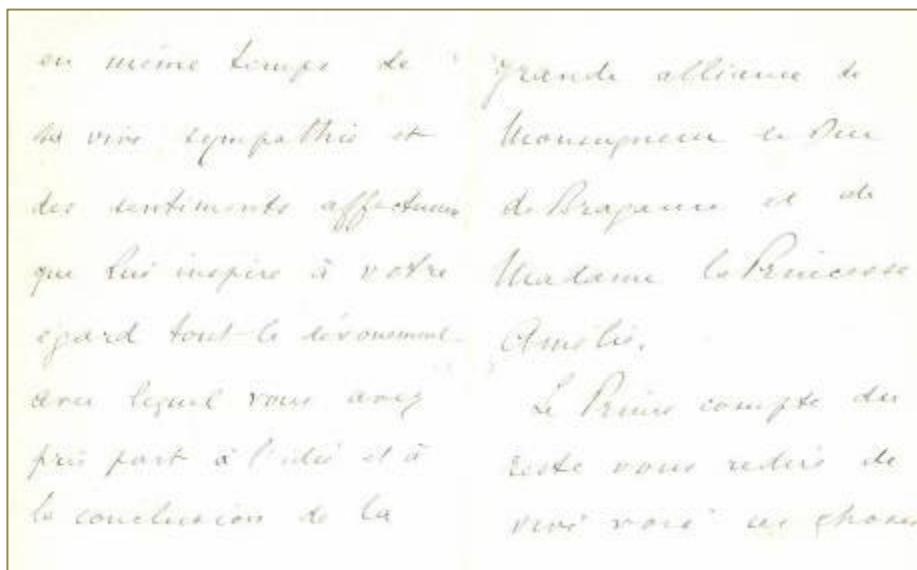 en même temps de
sa vive sympathie et
des sentiments affectueux
que lui inspire à votre
égard tout le dévouement
avec lequel vous avez
pris part à l'idée et à
la conclusion de la
grande alliance de
Monseigneur le Duc
de Bragance et de
Madame la Princesse
Amélie.
Le Prince compte du
reste vous redire de
vive voix ces choses